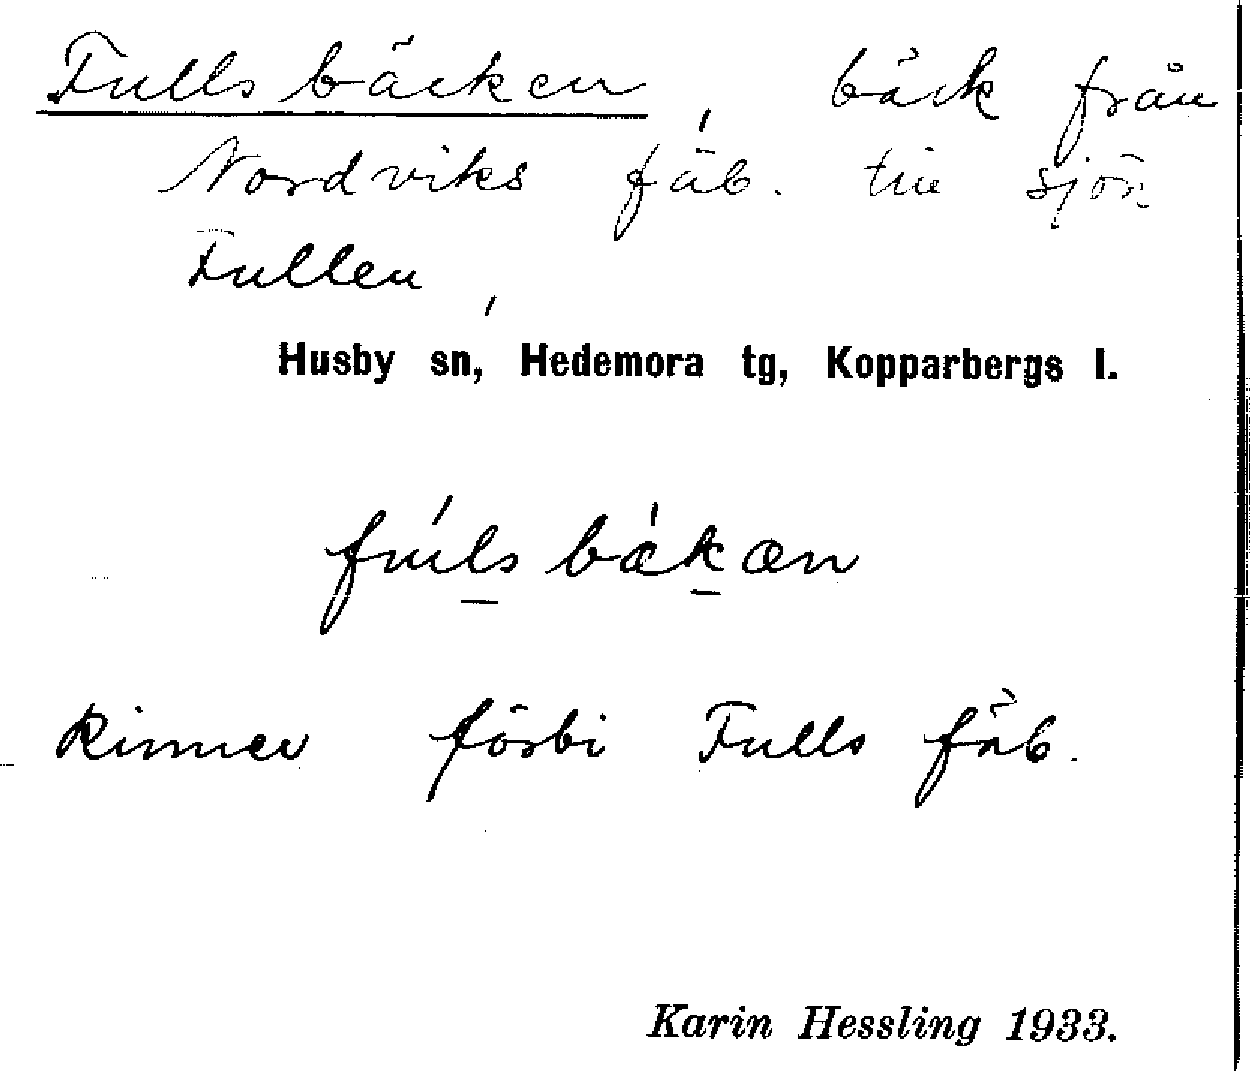 Fullsbäcken, bäck från
Nordviks fäb. till sjön
Fullen,
Husby sn, Hedemora tg, Kopparbergs l.
fúl̲sbæ̀k̲æn
Rinner förbi Fulls fäb.
Karin Hessling 1933.